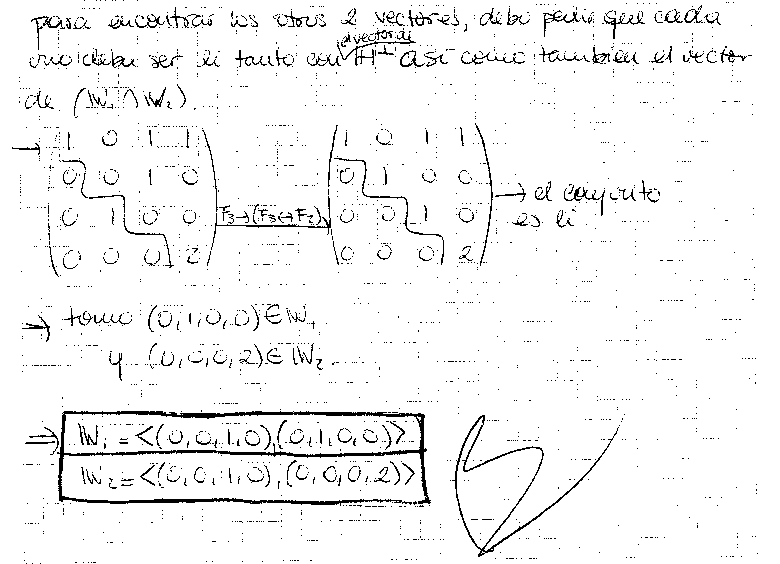 para encontrar los otros 2 vectores, debo pedir que cada
uno debe ser li tanto con el vector de H⊥ así como también el vector
de (W₁ ∩ W₂)
→ (1 0 1 1) (1 0 1 1)
(0 0 1 0) (0 1 0 0) → el conjunto
(0 1 0 0) F₃→(F₃↔F₂) (0 0 1 0) es li
(0 0 0 2) (0 0 0 2)
→ tomo (0,1,0,0) ∈ W₁
y (0,0,0,2) ∈ W₂
⇒ W₁ = <(0,0,1,0),(0,1,0,0)>
W₂ = <(0,0,1,0),(0,0,0,2)>